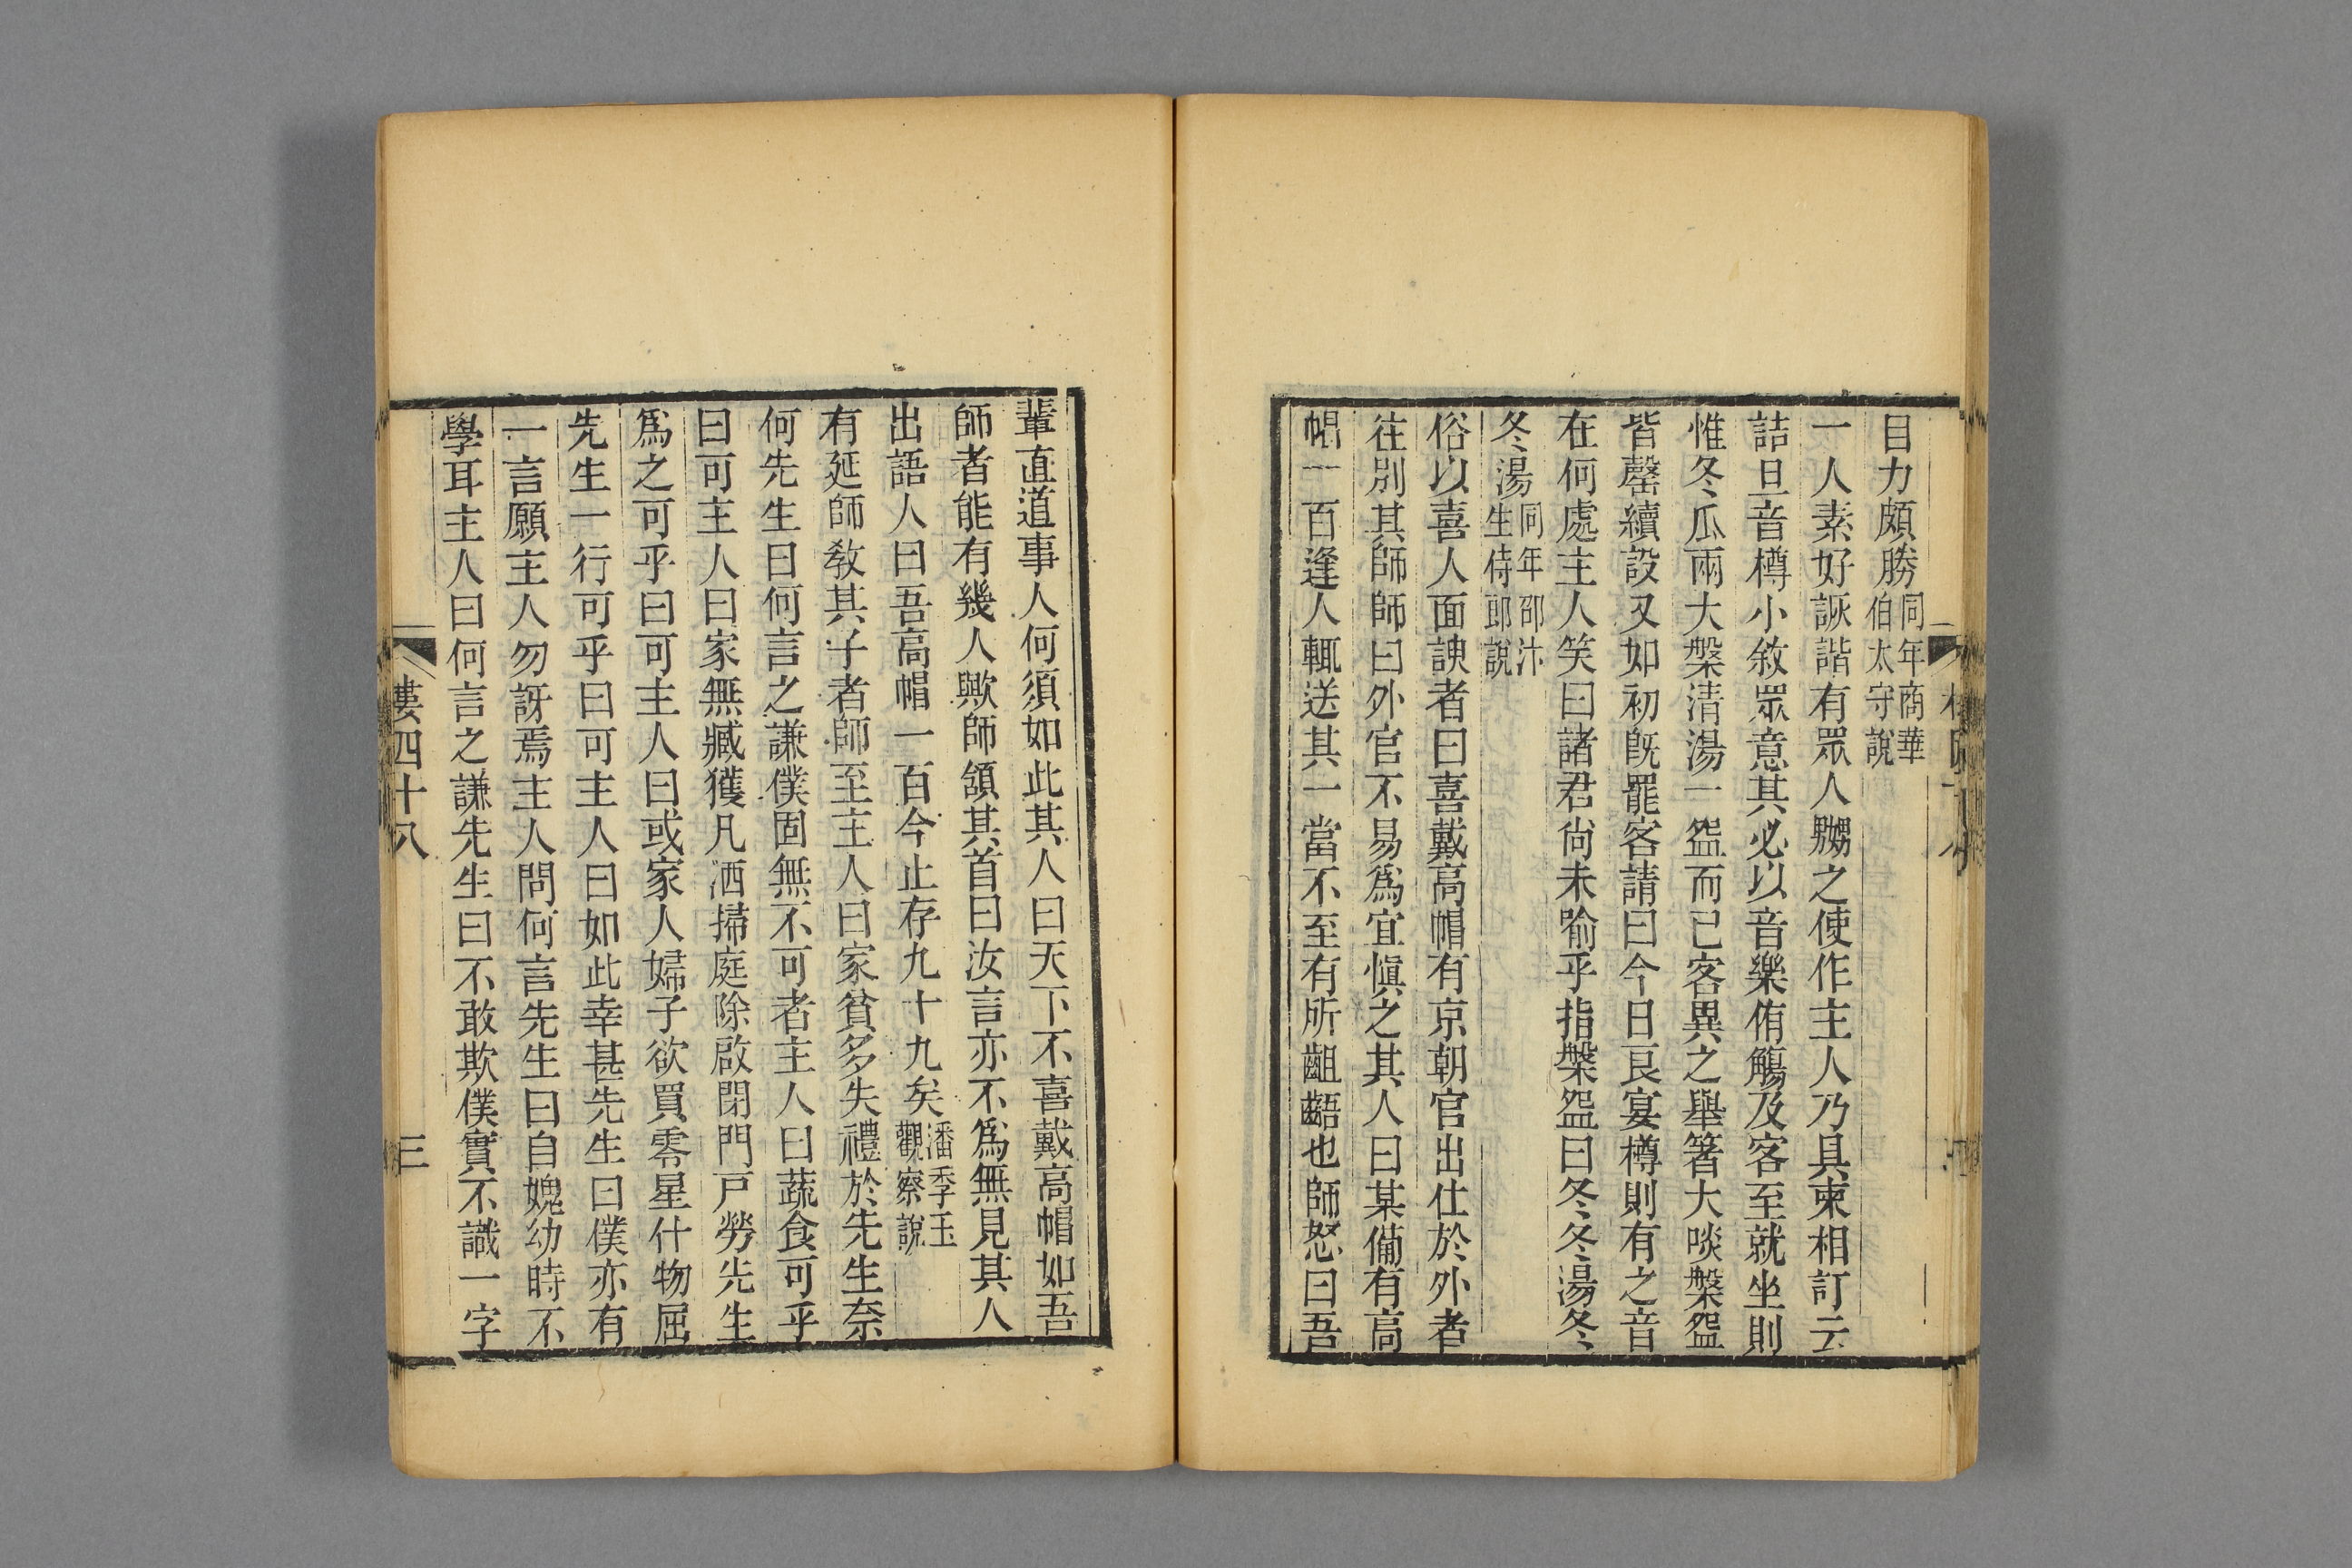 目力頗勝同年商華伯太守說
一人素好詼諧有眾人嬲之使作主人乃具柬相訂云
詰旦音樽小敘眾意其必以音樂侑觴及客至就坐則
惟冬瓜兩大槃清湯一盌而已客異之舉箸大啖槃盌
皆罄續設又如初旣罷客請曰今日良宴樽則有之音
在何處主人笑曰諸君尙未喻乎指槃盌曰冬冬湯冬
冬湯同年邵汴生侍郎說
俗以喜人面諛者曰喜戴高帽有京朝官出仕於外者
往別其師師曰外官不易爲宜愼之其人曰某備有高
帽一百逢人輒送其一當不至有所齟齬也師怒曰吾
輩直道事人何須如此其人曰天下不喜戴高帽如吾
師者能有幾人歟師頷其首曰汝言亦不爲無見其人
出語人曰吾高帽一百今止存九十九矣潘季玉觀察說
有延師教其子者師至主人曰家貧多失禮於先生奈
何先生曰何言之謙僕固無不可者主人曰蔬食可乎
曰可主人曰家無臧獲凡洒掃庭除啟閉門戸勞先生
爲之可乎曰可主人曰或家人婦子欲買零星什物屈
先生一行可乎曰可主人曰如此幸甚先生曰僕亦有
一言願主人勿訝焉主人問何言先生曰自媿幼時不
學耳主人曰何言之謙先生曰不敢欺僕實不識一字
四十八
三